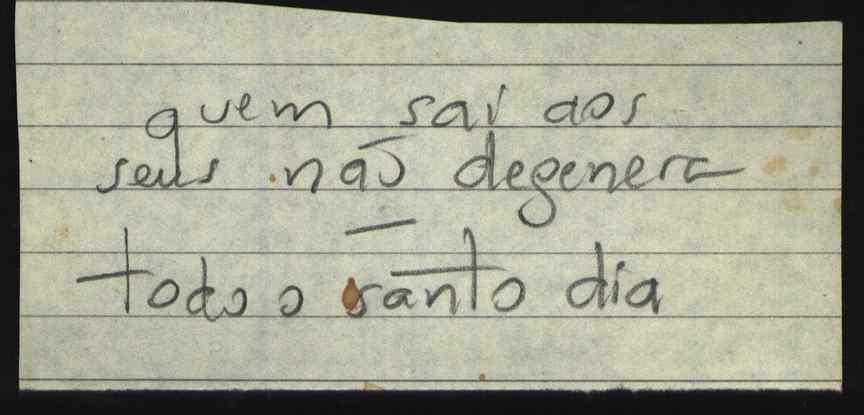 quem sai aos
seus não degenera
—
todo o santo dia